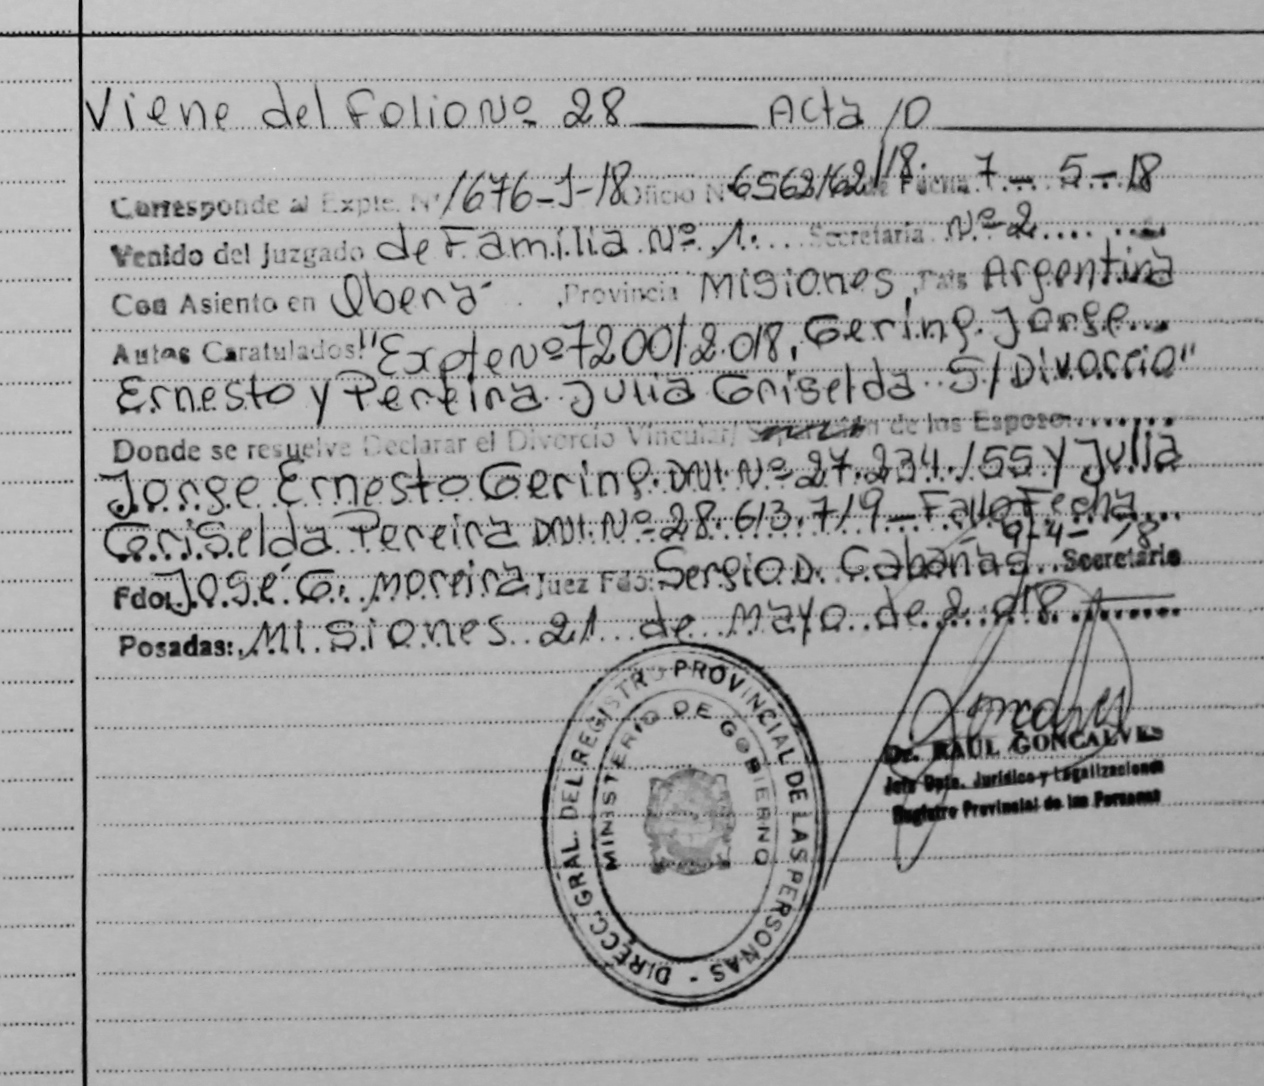 Viene del Folio Nº 28 ____ Acta 10
Corresponde al Expte. Nº 1676-J-18 Oficio Nº 6562/62/18. de Fecha 7 - 5 - 18
Venido del Juzgado de Familia Nº 1. Secretaria Nº 2
Con Asiento en Obera ,Provincia Misiones, Pais Argentina
Autos Caratulados: "Expte Nº 7200/2.018, Gering Jorge
Ernesto y Pereira Julia Griselda S/Divorcio"
Donde se resuelve Declarar el Divorcio Vincular/ Separación de los Esposos
Jorge Ernesto Gering. DNI. Nº 27.234.155 y Julia
Griselda Pereira DNI. Nº 28.613.719 - Fallo Fecha
9-4-18
Fdo: José G. Moreira Juez Fdo: Sergio D. Cabañas. Secretario
Posadas: Misiones 21 de Mayo de 2.018
DIRECC. GRAL. DEL REGISTRO PROVINCIAL DE LAS PERSONAS -
MINISTERIO DE GOBIERNO
Dr. RAUL GONCALVES
Jefe Dpto. Jurídico y Legalizaciones
Registro Provincial de las Personas